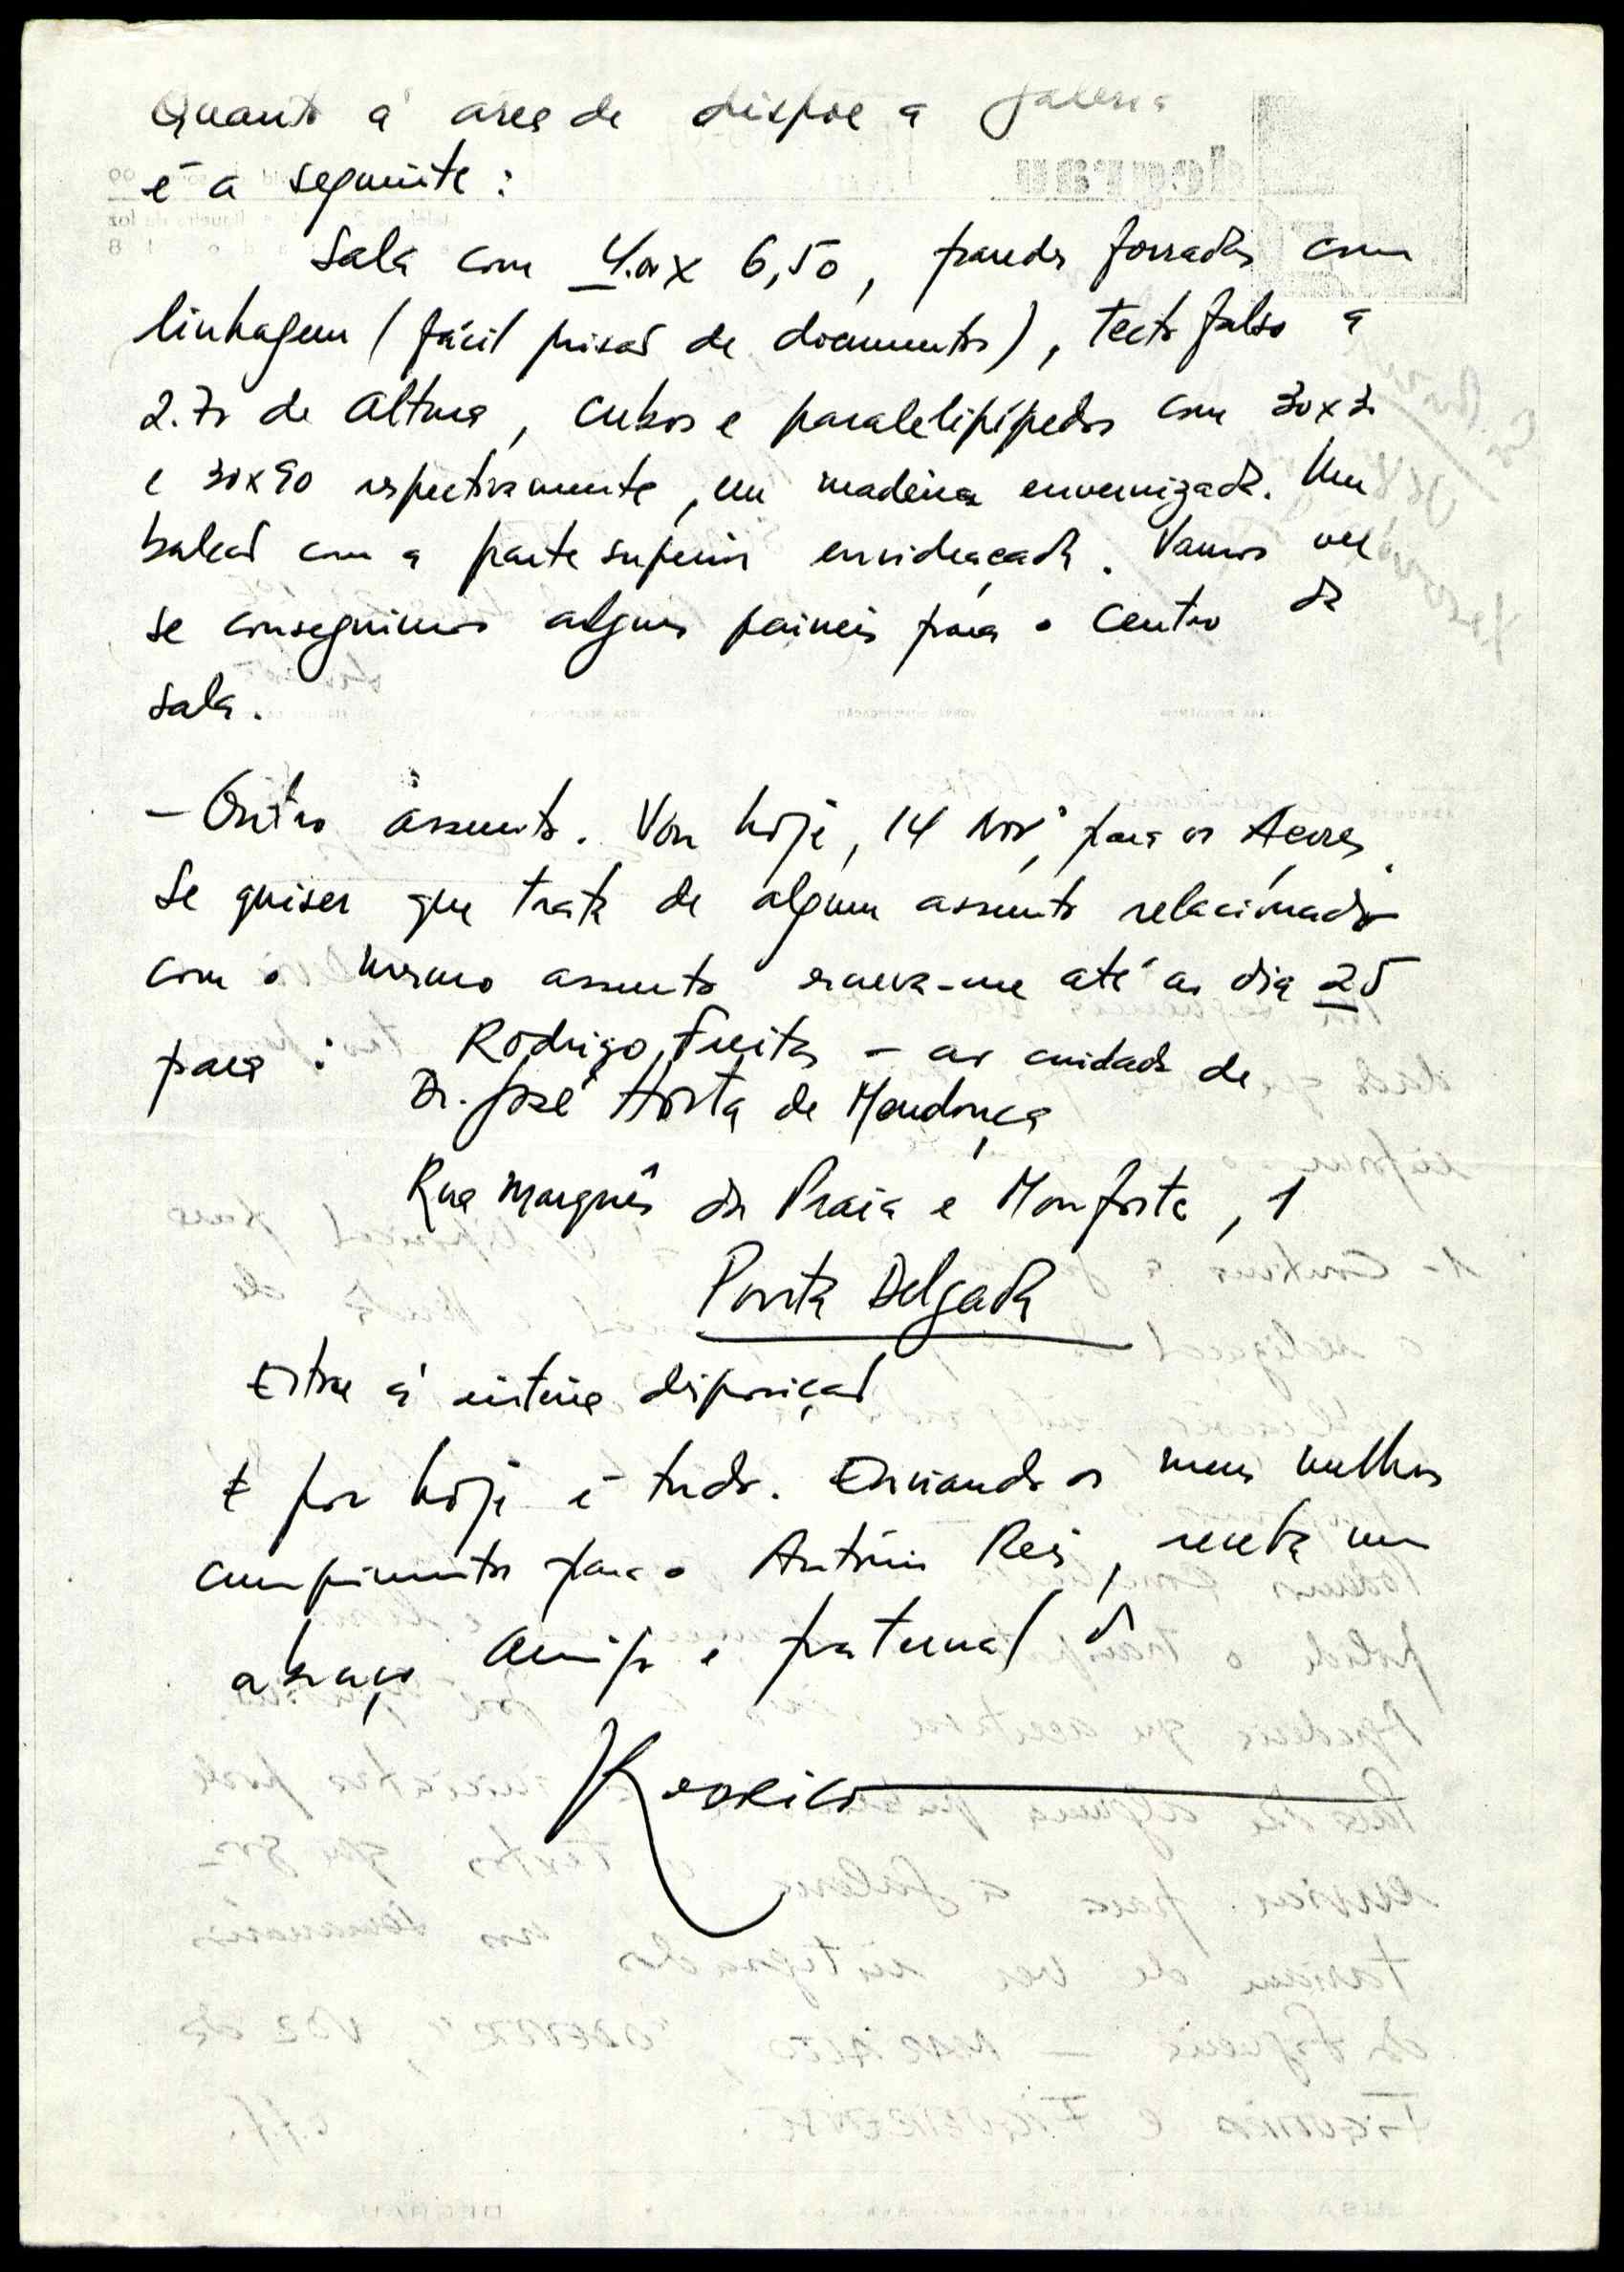 Quanto à area de dispõe a galeria
é a seguinte:
Sala com 4.00 x 6,50, paredes forradas com
linhagem (fácil prisão de documentos), tecto falso a
2.70 de altura, cubos e paralelipípedos com 30x30
e 30x90 respectivamente, em madeira envernizada. Um
balcão com a parte superior envidraçada. Vamos ver
se conseguimos alguns paineis para o centro da
sala.
- Outro assunto. Vou hoje, 14 Nov, para os Açores.
Se quiser que trate de algum assunto relacionado
com o mesmo assunto escreva-me até ao dia 25
para: Rodrigo Freitas - ao cuidado de
Dr. José Horta de Mendonça
Rua Marquês da Praia e Monforte, 1
Ponta Delgada
Estou à inteira disposição
E por hoje é tudo. Enviando os meus melhores
cumprimentos para o António Reis, receba um
abraço amigo e fraternal do